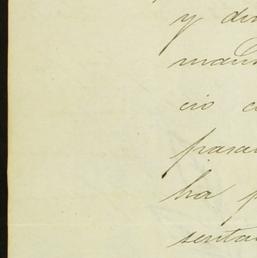 y di
man
cio c
pasa
ha p
senta